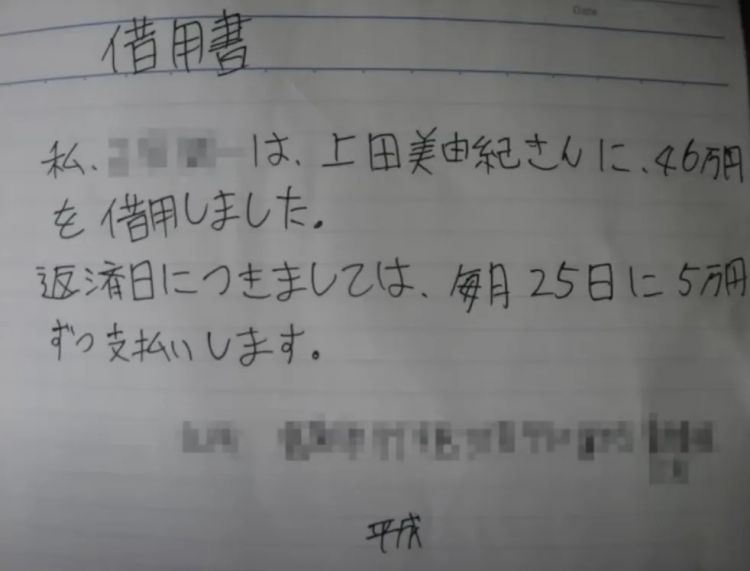 Date
借用書
私、は、上田美由紀さんに、46万円
を借用しました。
返済日につきましては、毎月25日に5万円
ずつ支払いします。
平成